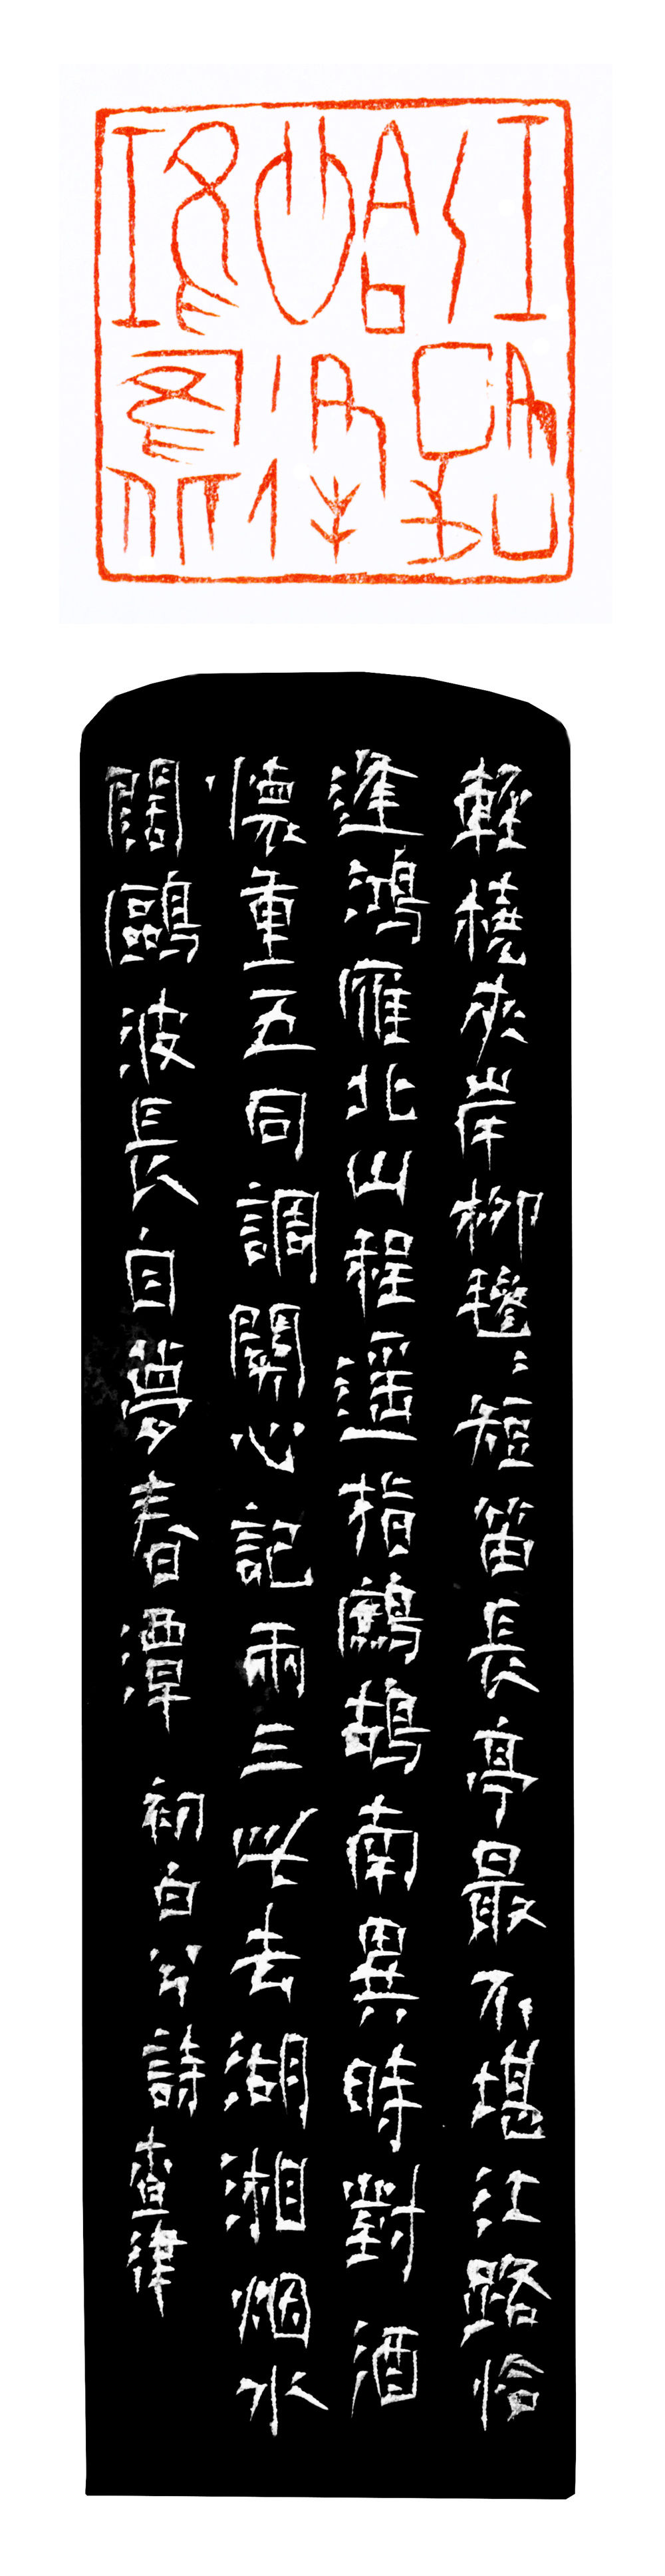 輕橈夾岸柳毿々短笛長亭最不堪江路恰
逢鴻雁北山程遥指鷓鴣南異時對酒
懷重五同調關心記兩三此去湖湘烟水
闊鷗波長自夢春潭 初白公詩 查律